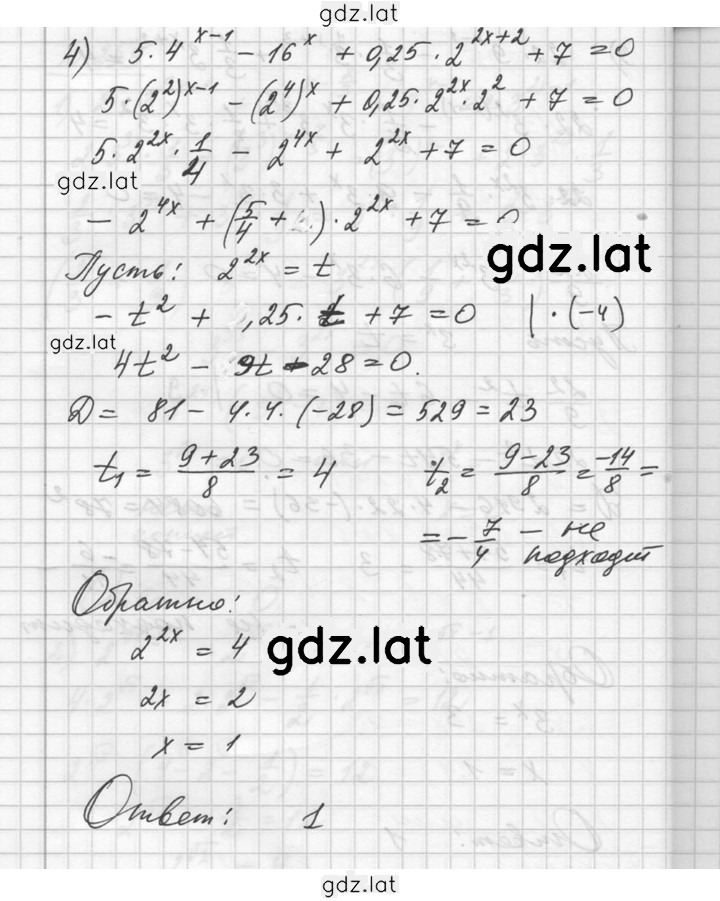 gdz.lat
4) 5·4^(x-1) - 16^x + 0,25·2^(2x+2) + 7 = 0
5·(2^2)^(x-1) - (2^4)^x + 0,25·2^(2x)·2^2 + 7 = 0
5·2^(2x)·1/4 - 2^(4x) + 2^(2x) + 7 = 0
gdz.lat
- 2^(4x) + (5/4 + )·2^(2x) + 7 = 0
gdz.lat
Пусть: 2^(2x) = t
- t^2 + ,25·t + 7 = 0 |·(-4)
gdz.lat
4t^2 - 9t - 28 = 0.
D = 81 - 4·4·(-28) = 529 = 23
t₁ = (9+23)/8 = 4 t₂ = (9-23)/8 = -14/8 =
= -7/4 - не подходит
Обратно:
2^(2x) = 4
gdz.lat
2x = 2
x = 1
Ответ: 1
gdz.lat